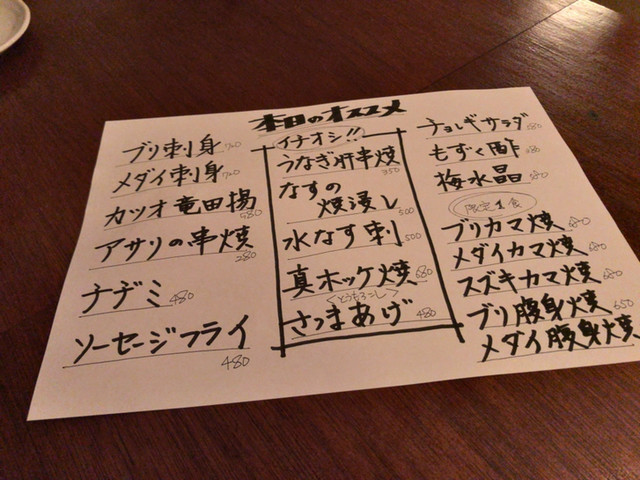 本日のオススメ
ブリ刺身
メダイ刺身
カツオ竜田揚 480
アサリの串焼 280
チヂミ 480
ソーセージフライ 480
イチオシ!!
うなぎ肝串焼 350
なすの
焼浸し 500
水なす刺 500
真ホッケ焼 680
<とうもろこし>
さつまあげ 480
チョレギサラダ
もずく酢
梅水晶
限定1食
ブリカマ焼
メダイカマ焼
スズキカマ焼
ブリ腹身焼 650
メダイ腹身焼